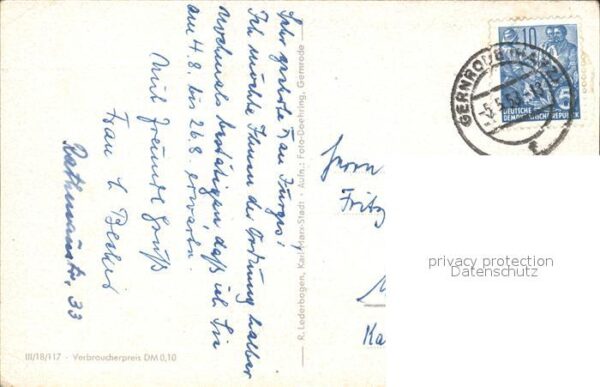 Sehr geehrte Frau Jürges!
Ich möchte Ihnen der Ordnung halber
nochmals bestätigen daß ich Sie
am 4.8. bis 26.8. erwarte.
Mit freundl. Gruß
Frau L. Becker
Rathenaustr. 33
III/18/117 - Verbraucherpreis DM 0,10
R. Lederbogen, Karl-Marx-Stadt - Aufn.: Foto-Doehring, Gernrode
10
DEUTSCHE
DEMOKRATISCHE REPUBLIK
GERNRODE (HARZ)
Herrn
Fritz
privacy protection
Datenschutz
Ka